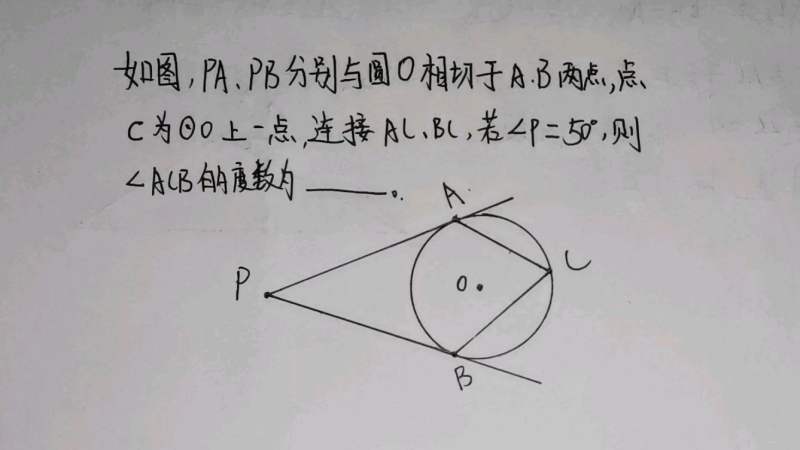 如图,PA、PB分别与圆O相切于A.B两点,点、
C为⊙O上一点,连接AC、BC,若∠P=50°,则
∠ACB的度数为______。
A
P
O
C
B